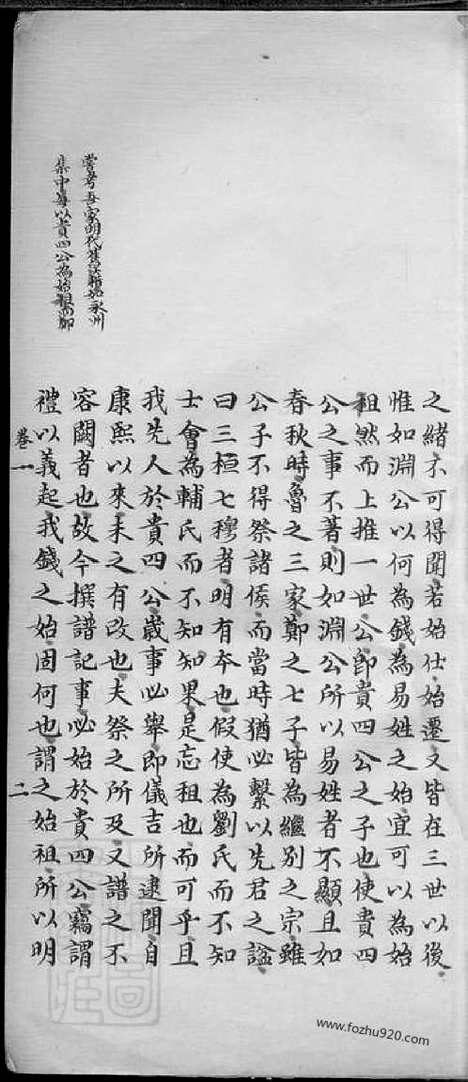 之緒不可得聞若始仕始遷又皆在三世以後
惟如淵公以何為錢為易姓之始宜可以為始
祖然而上推一世公即貴四公之子也使貴四
公之事不著則如淵公所以易姓者不顯且如
春秋時魯之三家鄭之七子皆為繼別之宗雖
公子不得祭諸侯而當時猶必繫以先君之諡
曰三桓七穆者明有本也假使為劉氏而不知
士會為輔氏而不知知果是忘祖也而可乎且
我先人於貴四公歲事必舉即儀吉所逮聞自
康熙以來未之有改也夫祭之所及又譜之不
容闕者也故今撰譜記事必始於貴四公竊謂
禮以義起我錢之始固何也謂之始祖所以明
卷一
二
嘗考吾家明代舊譜
永州
集中每以貴四公為始祖
www.fozhu920.com